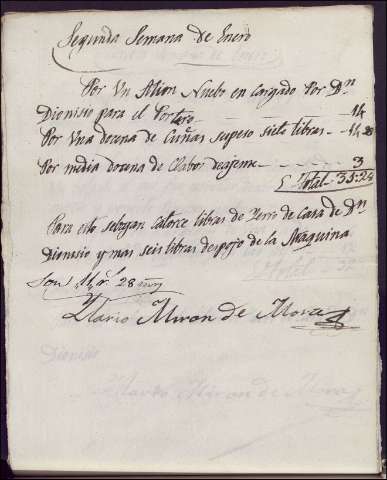 Segunda Semana de Enero
Por Un Nuebo en cargado Por Dn
Dionisio para el Portero 14
Por Una docena de Cuñas supeso siete libras 14,28
Por media docena de Clabos 3
Total 31:28
Para esto sebajan Catorce libras de Yerro de Casa de Dn
Dionisio y mas seis libras despojo de la Maquina
Son 28 mrs
Ylario Miron de Mora